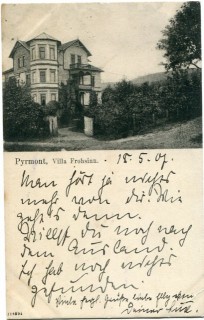 Pyrmont, Villa Frohsinn. 18.5.07.
Man hört ja nichts
mehr von dir. Wie
geht es denn.
Willst du noch nach
dem Ausland.
Ich hab noch nichts
gefunden.
Viele herzl. Grüße